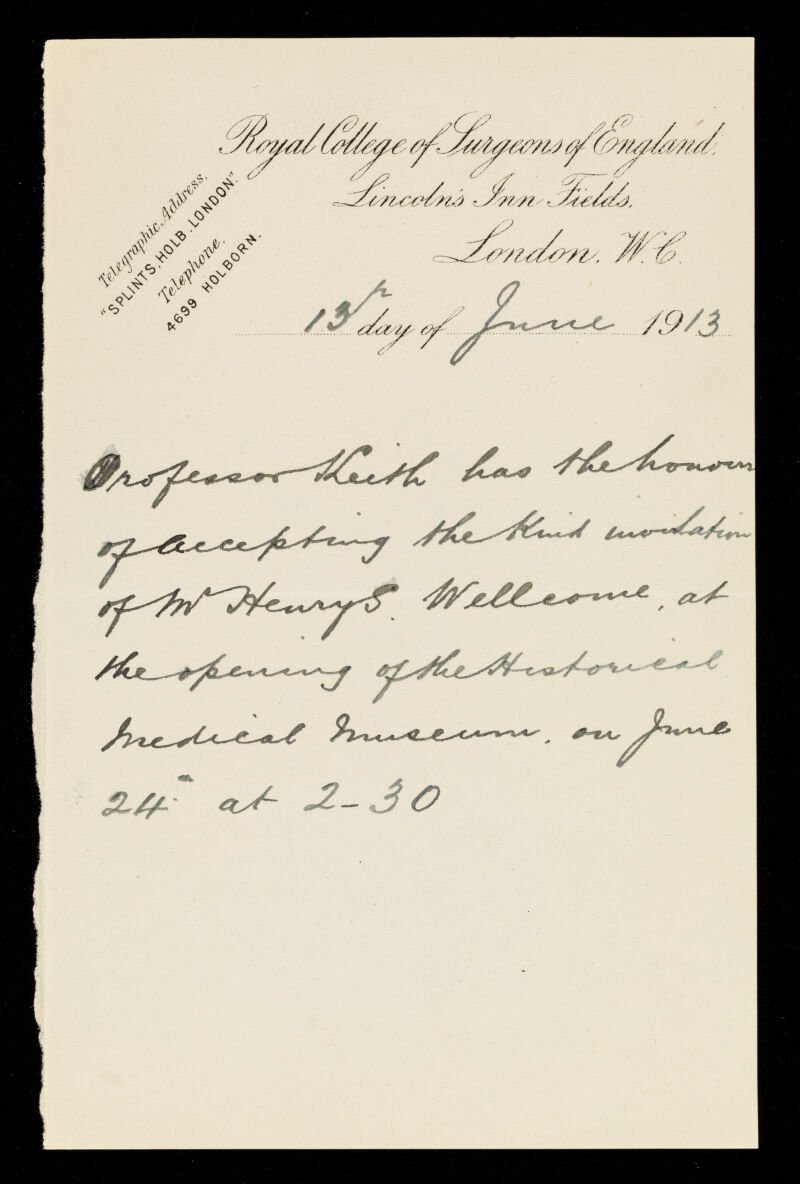 Royal College of Surgeons of England.
Lincoln's Inn Fields.
London. W.C.
Telegraphic Address.
"SPLINTS, HOLB. LONDON".
Telephone.
4699 HOLBORN.
13th day of June 1913
Professor Keith has the honour
of accepting the kind invitation
of Mr Henry S. Wellcome, at
the opening of the Historical
Medical Museum, on June
24th at 2-30